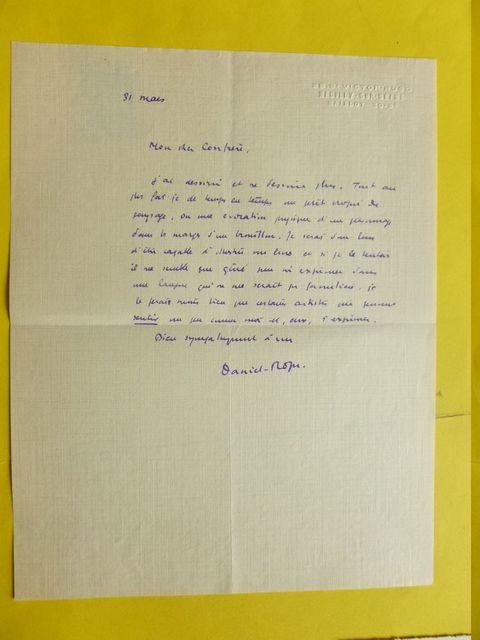 VICTOR-HUGO
NEUILLY-SUR-SEINE
MAILLOT
31 mars
Mon cher Confrère,
J'ai dessiné et ne dessine plus. Tout au
plus fais je de temps en temps un petit croquis de
paysage, ou une évocation physique d'un personnage
dans la marge d'un brouillon. Je serais d'un
d'être capable d'illustrer un livre et si je le tentais
il me semble que gêne à m'exprimer dans
une langue qui ne me serait pas familière, je
le ferais moins bien que certains artistes qui peuvent
sentir un peu comme moi et, eux, s'exprimer.
Bien sympathiquement à vous
Daniel-Rops.